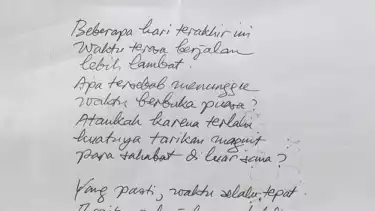 Beberapa hari terakhir ini
waktu terasa berjalan
lebih lambat.
Apa tersebab menunggu
waktu berbuka puasa?
Ataukah karena terlalu
kuatnya tarikan magnit
para sahabat di luar sana?
Yang pasti, waktu selalu tepat